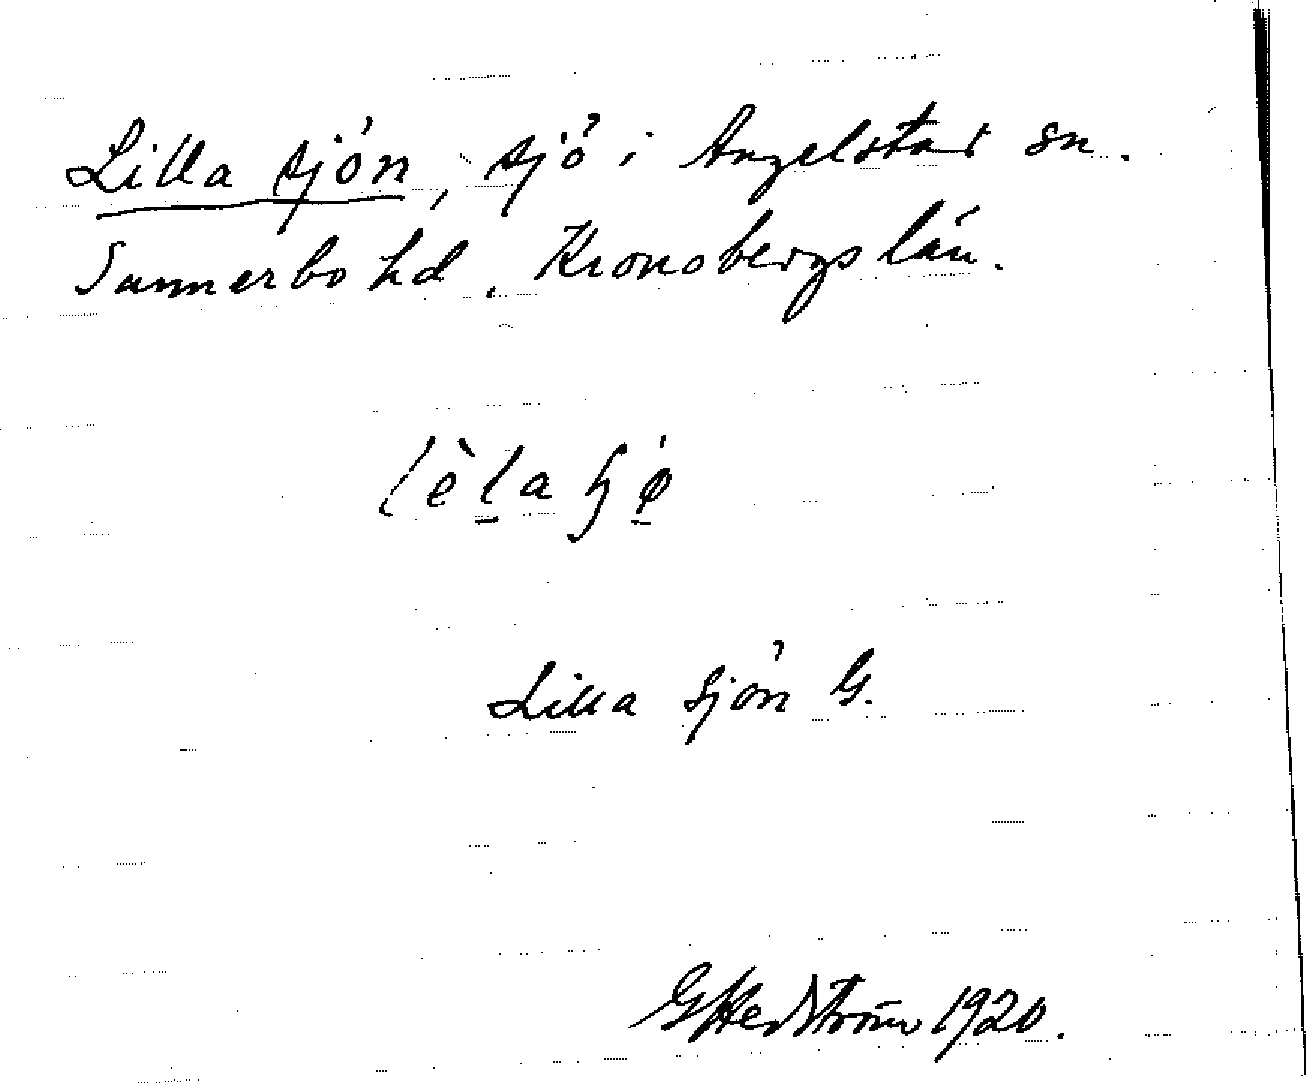 Lilla sjön, sjö i Angelstad sn.
Sunnerbo hd, Kronobergs län.
lèla ɧø
Lilla sjön G.
G Hedström 1920.